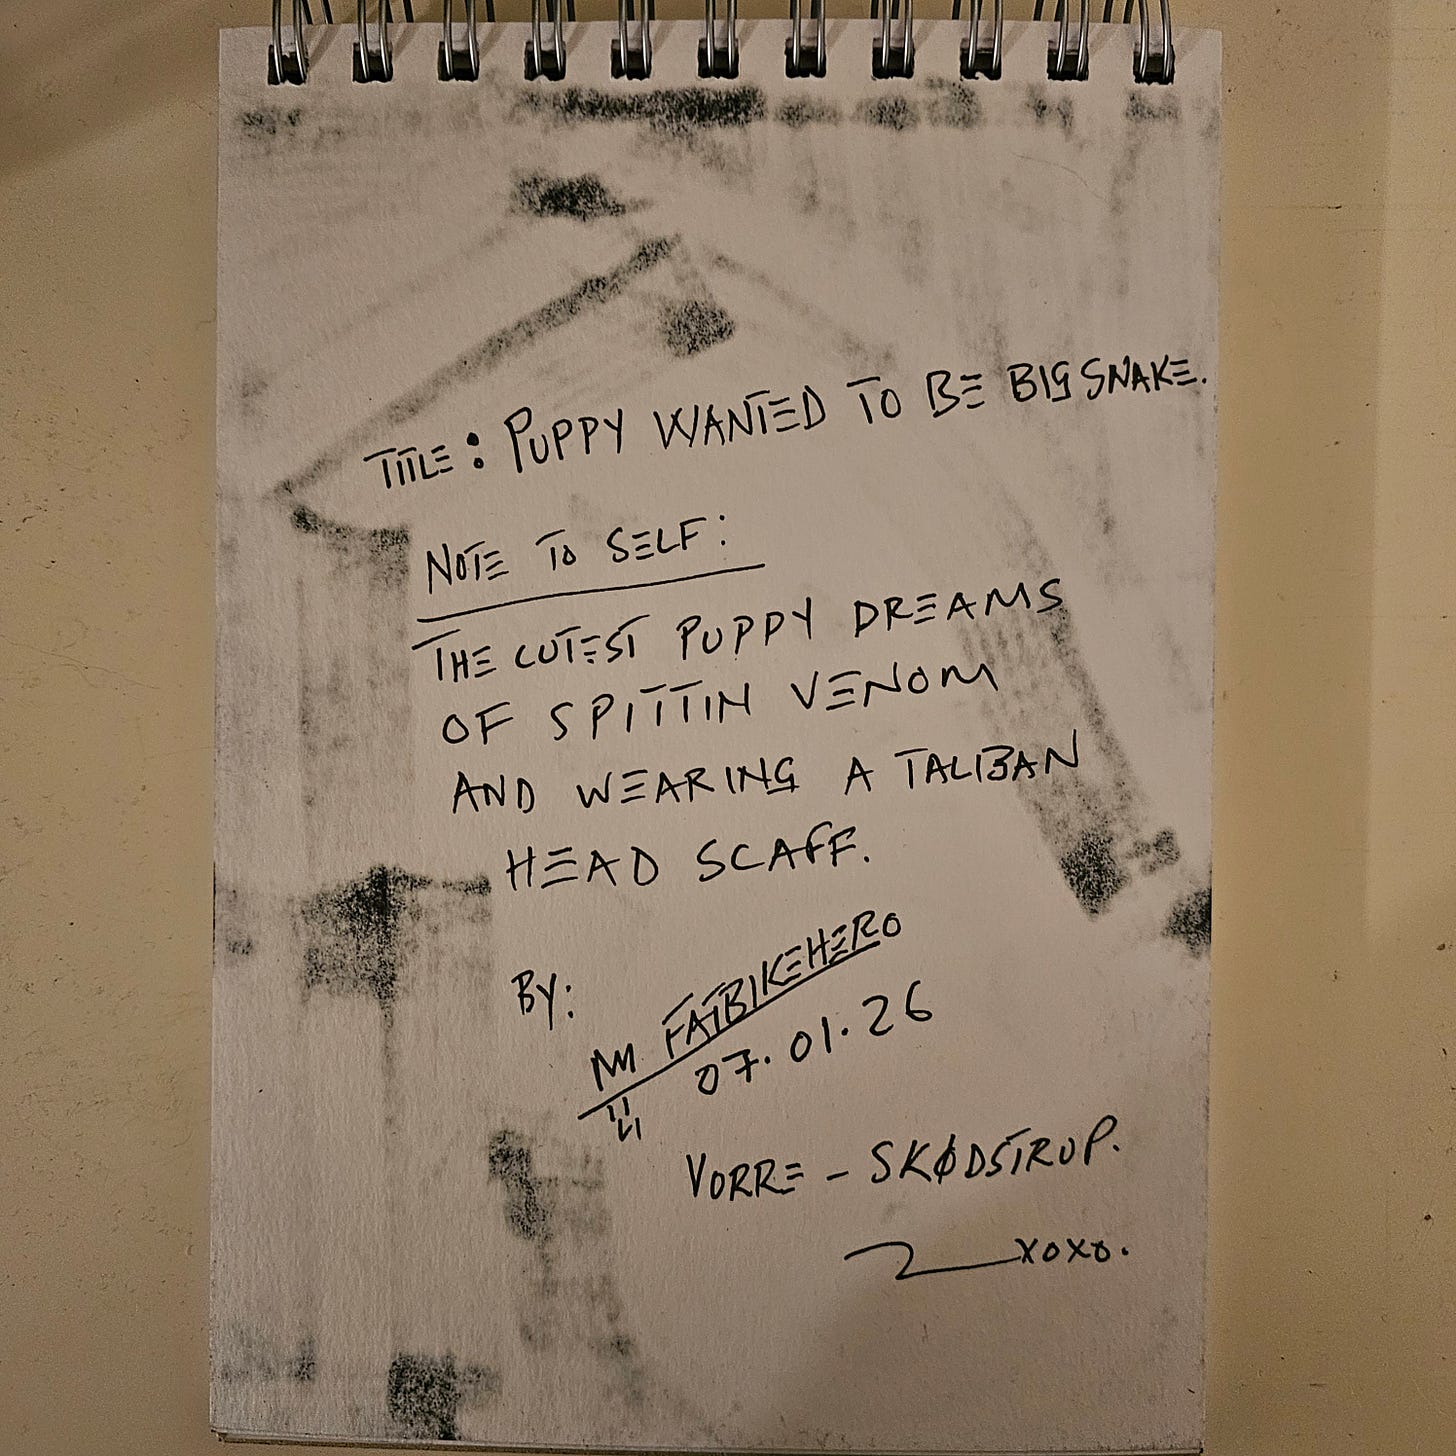 TITLE: PUPPY WANTED TO BE BIG SNAKE.
NOTE TO SELF:
THE CUTEST PUPPY DREAMS
OF SPITTIN VENOM
AND WEARING A TALIBAN
HEAD SCAFF.
BY:
FATBIKEHERO
07.01.26
VORRE - SKØDSTRUP.
xoxo.